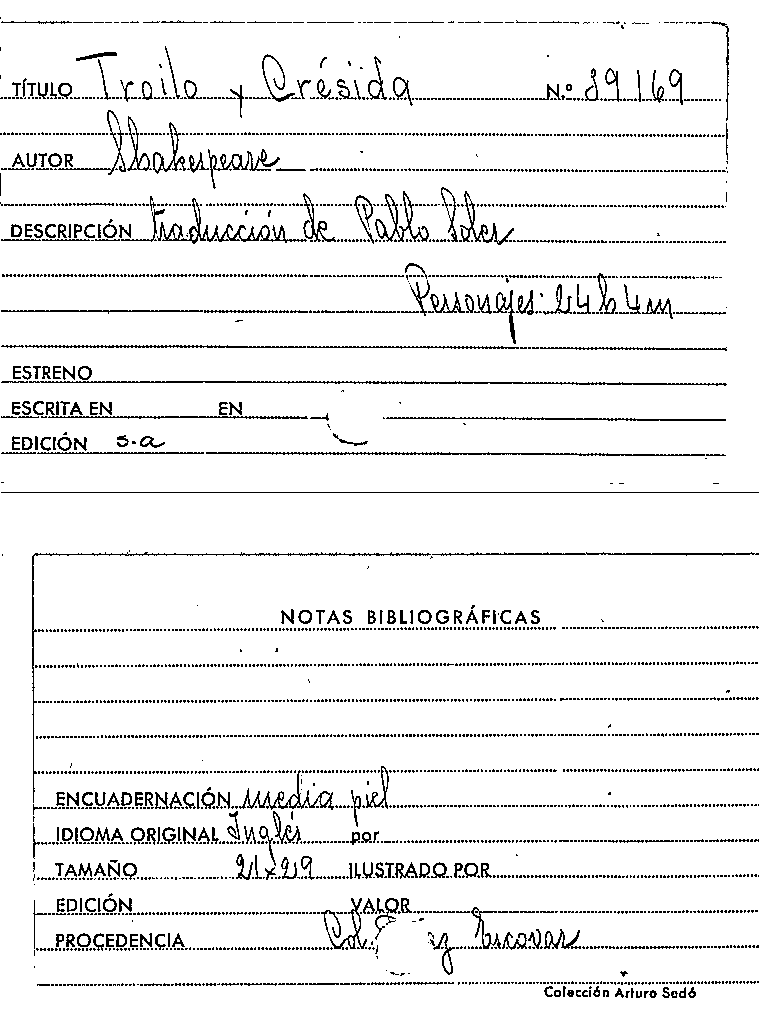 TÍTULO Troilo y Crésida N.º 89169
AUTOR Shakespeare
DESCRIPCIÓN traducción de Pablo Soler
Personajes: 24 h 4 m
ESTRENO
ESCRITA EN EN
EDICIÓN s.a
NOTAS BIBLIOGRÁFICAS
ENCUADERNACIÓN media piel
IDIOMA ORIGINAL Inglés por
TAMAÑO 21x29 ILUSTRADO POR
EDICIÓN VALOR
PROCEDENCIA Col. Escovar
Colección Arturo Sedó